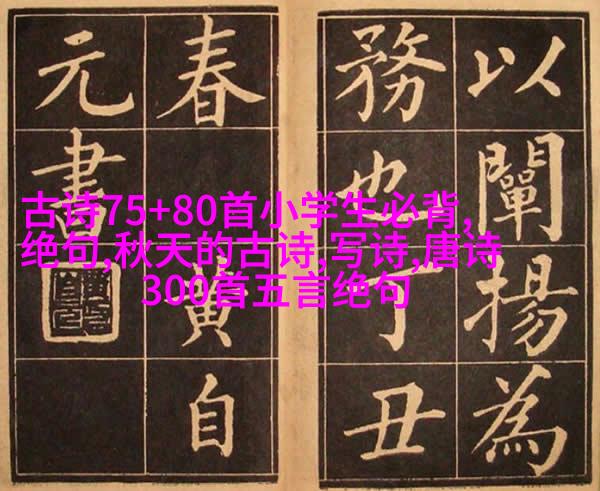 以闡揚為
務也丁丑
春黃自
元書
古诗75+80首小学生必背,
绝句,秋天的古诗,写诗,唐诗
300首五言绝句